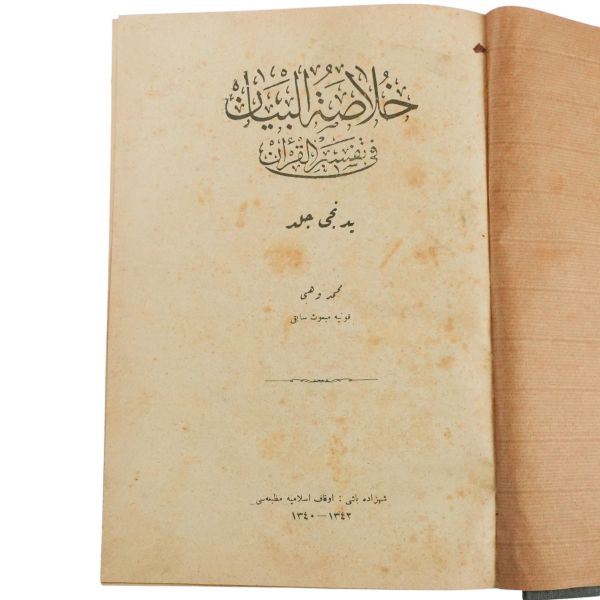 خلاصة البيان
فى تفسير القرأن
يدنجى جلد
محمد وهبى
قونيه مبعوث سابقى
شهزاده باشى : اوقاف اسلاميه مطبعه سى
١٣٤٠—١٣٤٢